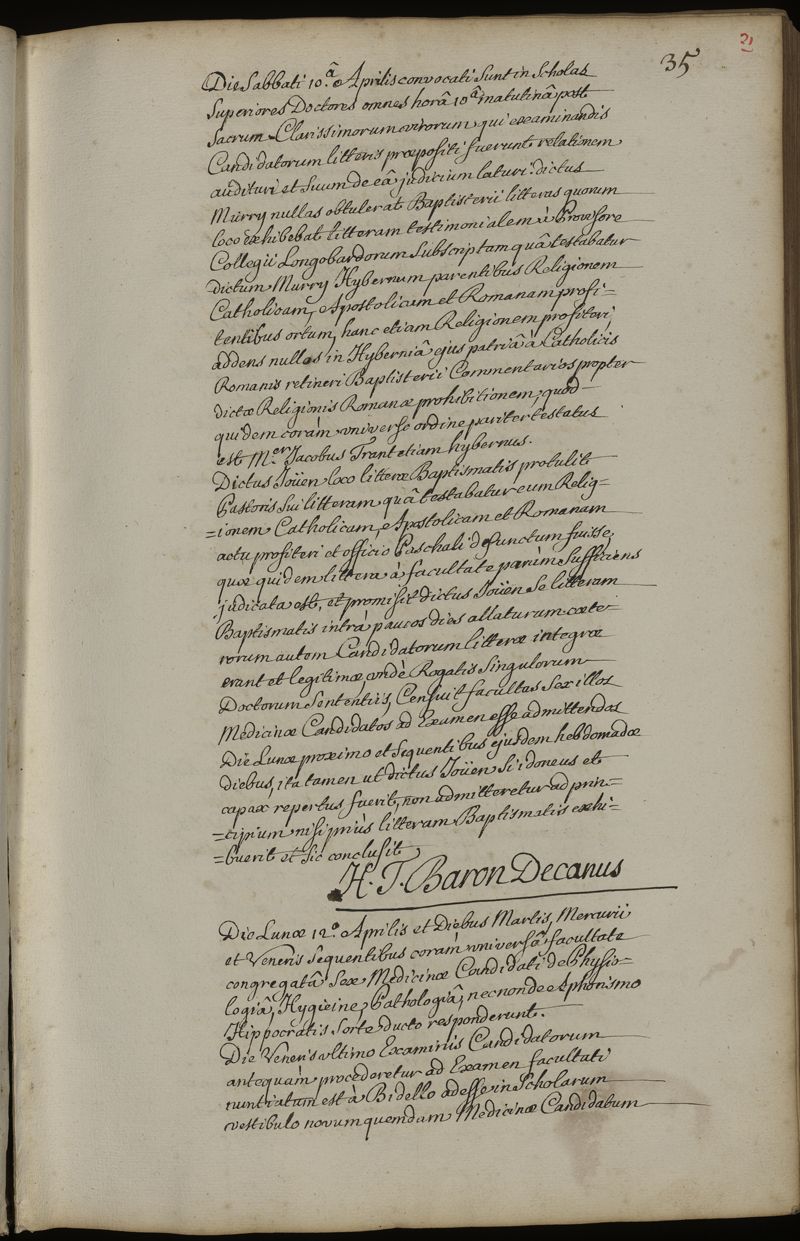 35
2
Die Sabbati 10.â Aprilis convocati Sunt in Scholas
Superiores Doctores omnes horâ 10â matutinâ post
Sacrum Clarissimorum virorum qui examinandis
Candidatorum litteris præpositi fuerunt relationem
audituri et Suum de eâ judicium laturi: dictus
Murry nullas obtulerat Baptisterii litteras quorum
loco exhibebat litteram testimonialem à Provisore
Collegii Longobardorum Subscriptam quâ testabatur
dictum Murry Hybernum parentibus Religionem
Catholicam, Apostolicam et Romanam profi=
tentibus ortum, hanc etiam Religionem profiteri,
addens nullos in Hyberniâ ejus patriâ à Catholicis
Romanis retineri Baptisterii Commentarios propter
dictæ Religionis Romanæ prohibitionem, quod
quidem coràm universo ordine pariter testatus
est M.er Jacobus Trant etiam hybernus.
Dictus Joüen loco litteræ Baptismatis protulit
Pastoris Sui litteram quâ testabatur eum Relig=
=ionem Catholicam, Apostolicam et Romanam
actu profiteri et officio Paschali defunctum fuisse,
quæ quidem littera à facultate parùm Sufficiens
judicata est, et promisit dictus Joüen Se litteram
Baptismatis intrà paucos dies allaturum cæte=
rorum autem Candidatorum litteræ integræ
erant et legitimæ, undè Rogatis Singulorum
Doctorum Sententiis, Censuit facultas Sex illos
Medicinæ Candidatos ad Examen esse admittendos
Die Lunæ proximo et Sequentibus ejusdem hebdomadæ
diebus, ita tamen ut dictus Joüen Si idoneus et
capax repertus fuerit, non admitteretur ad prin=
=cipium nisi priùs litteram Baptismatis exhi=
=buerit et Sic conclusit
H. T. Baron Decanus
Die Lunæ 12.â Aprilis et Diebus Martis, Mercurii
et Veneris Sequentibus coràm universâ facultate
congregatâ Sex Medicinæ Candidati de Physio=
logiâ, Hygieine, Pathologiâ, necnon de Aphorismo
Hippocratis Sorte ducto responderunt.
Die Veneris ultimo Examinis Candidatorum
antequàm procederetur ad Examen facultati
nuntiatum est à Bidello adesse in Scholarum
vestibulo novum quemdam Medicinæ Candidatum